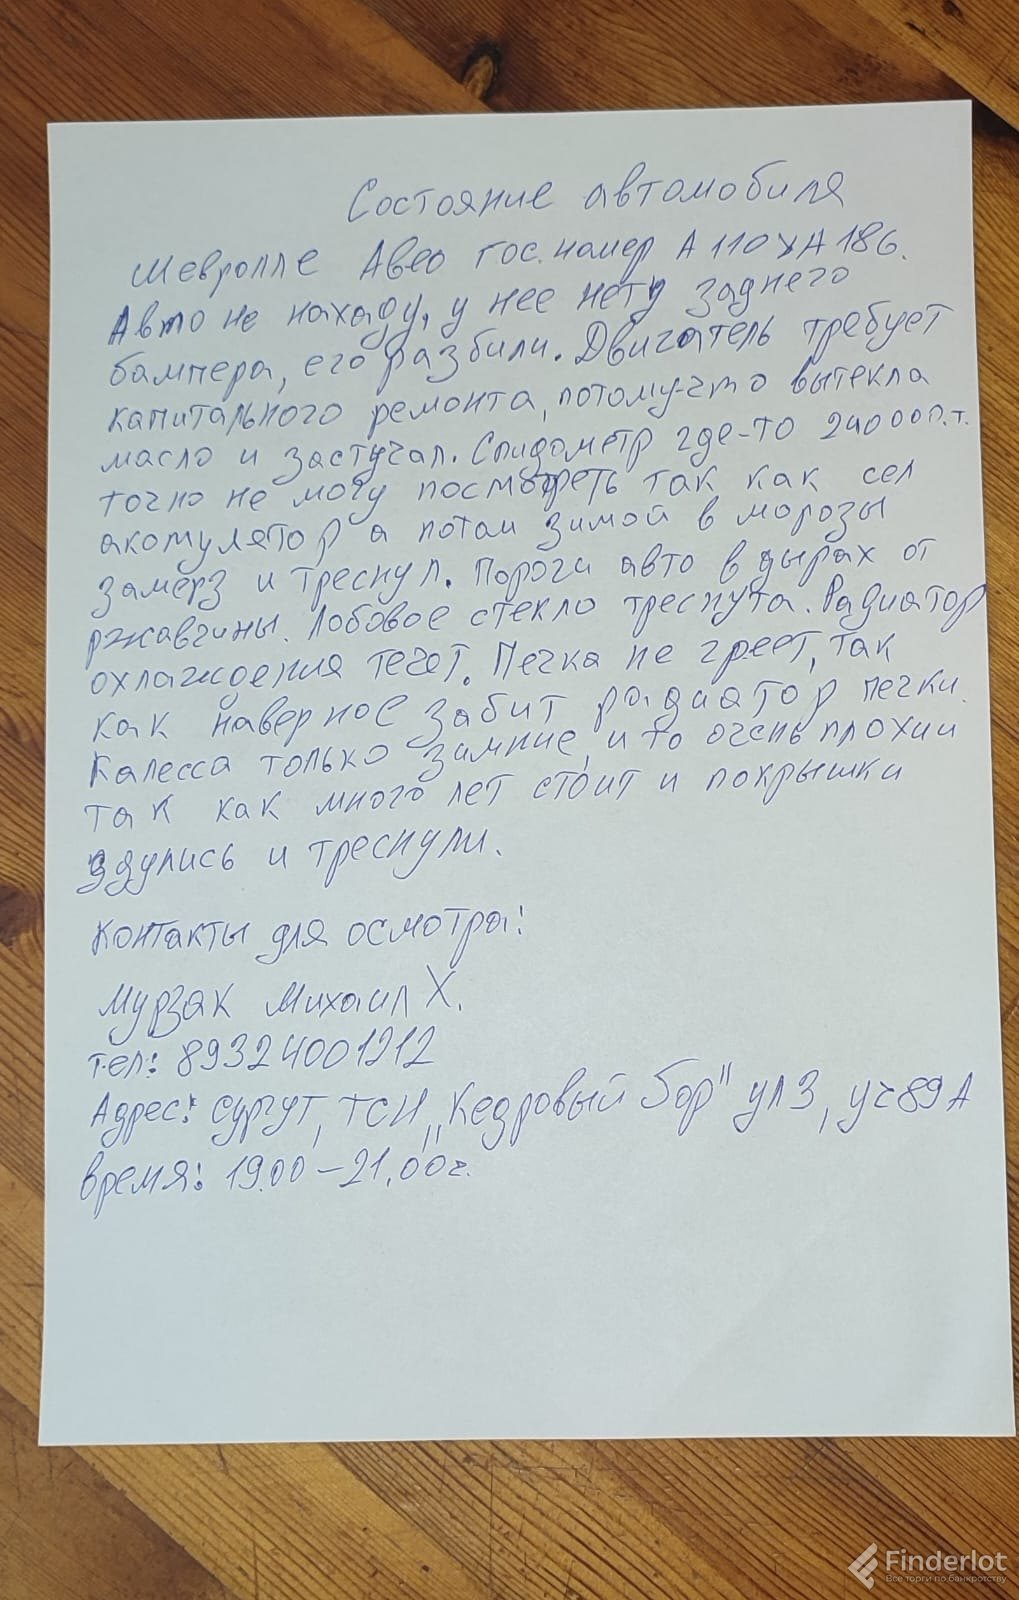 Состояние автомобиля
Шевролле Авео гос. намер А110УА186.
Авто не нахаду, у нее нету заднего
бампера, его разбили. Двигатель требует
капитального ремонта, потому-что вытекла
масло и застучал. Спидометр где-то 240000 п.т.
точно не могу посмотреть так как сел
акомулятор а потом зимой в морозы
замерз и треснул. Пороги авто в дырах от
ржавчины. Лобовое стекло треснута. Радиатор
охлаждения течет. Печка не греет, так
как наверное забит радиатор печки.
Калесса только зимние, и то очень плохии
так как много лет стоит и покрышки
здулись и треснули.
Контакты для осмотра:
Мурзак Михаил Х.
тел: 89324001212
Адрес: Сургут, ТСН „Кедровый Бор" ул 3, уч 89А
время: 19.00 – 21.00 ч.
Finderlot
Все торги по банкротству